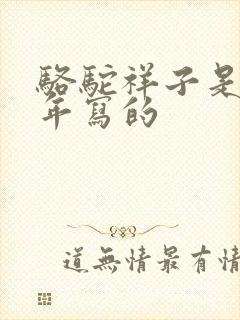 駱駝祥子是
年寫的
道無情最有情